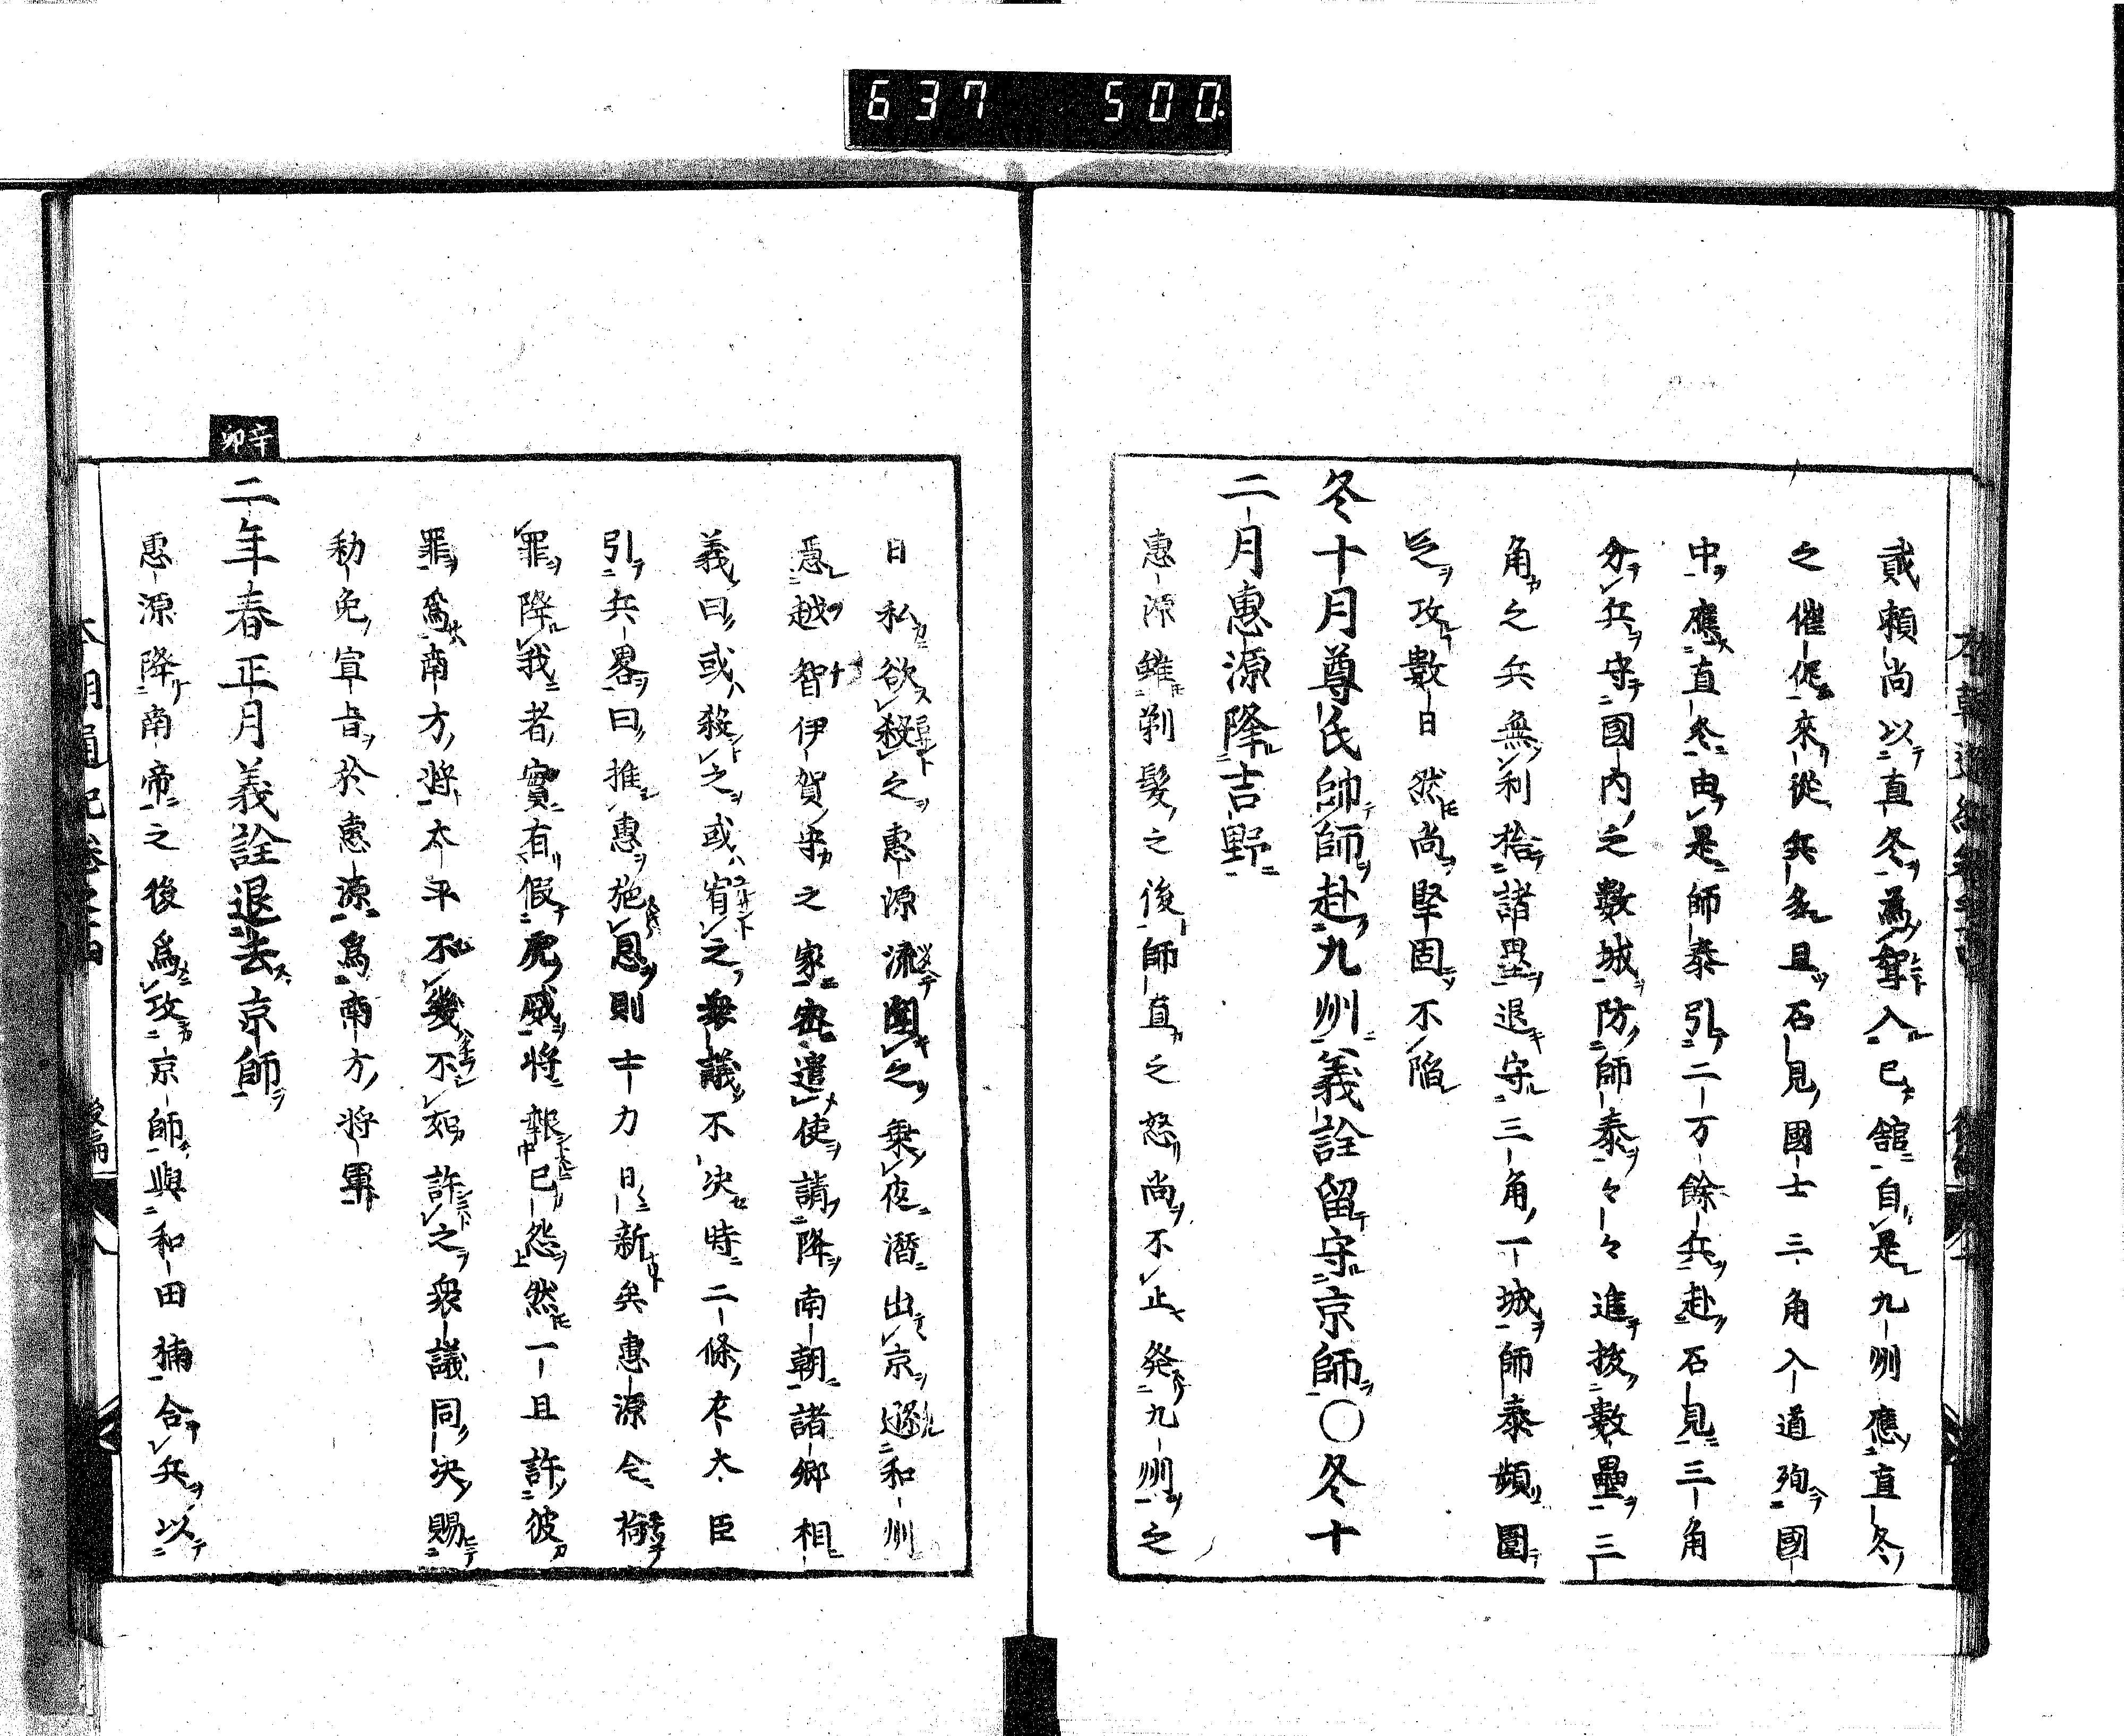 637 500.
貳頼尚以直冬爲聟入已舘自是九州應直冬
之催促來從兵多且石見國士三角入道殉國
中應直冬由是師泰引二万餘兵赴石見三角
分兵守國内之數城防師泰々々進拔數壘三
角之兵無利捨諸壘退守三角一城師泰頻圍
之攻數日然尚堅固不陷
冬十月尊氏帥師赴九州義詮留守京師〇冬十
二月惠源降吉野
惠源雖剃髮之後師直之怒尚不止発九州之
日私欲殺之惠源流聞之乗夜潜出京遁和州
憑越智伊賀守之家密遣使請降南朝諸卿相
義曰或殺之或宥之衆議不决時二條左大臣
引兵畧曰推惠施恩則士力日新矣惠源今悔
罪降我者實有假虎威將報已怨然一旦許彼
罪爲南方將太平不幾不如許之衆議同决賜
勅免宣旨於惠源爲南方將軍
辛卯
二年春正月義詮退去京師
惠源降南帝之後爲攻京師與和田楠合兵以
本朝通紀巻之四 後編 八